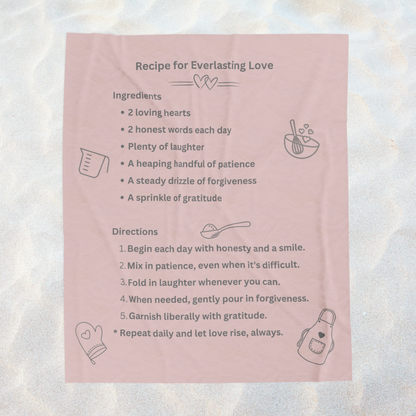 Recipe for Everlasting Love
Ingredients
• 2 loving hearts
• 2 honest words each day
• Plenty of laughter
• A heaping handful of patience
• A steady drizzle of forgiveness
• A sprinkle of gratitude
Directions
1. Begin each day with honesty and a smile.
2. Mix in patience, even when it's difficult.
3. Fold in laughter whenever you can.
4. When needed, gently pour in forgiveness.
5. Garnish liberally with gratitude.
* Repeat daily and let love rise, always.